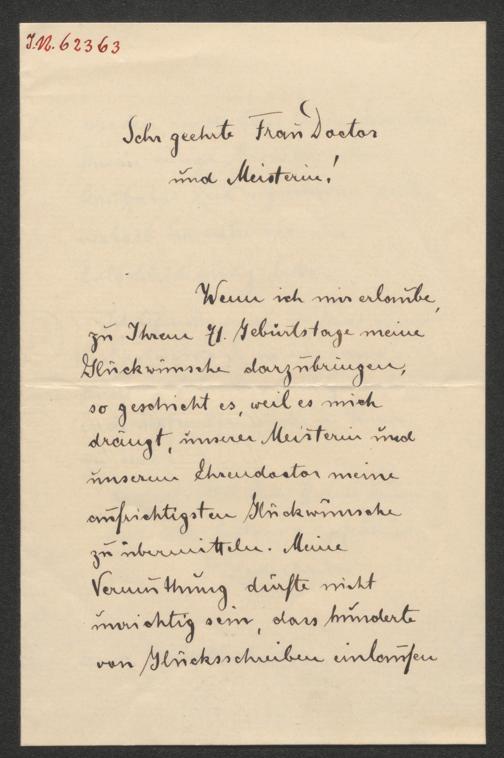 J.N. 62363
Sehr geehrte Frau Doctor
und Meisterin!
Wenn ich mir erlaube,
zu Ihrem 71. Geburtstage meine
Glückwünsche darzubringen,
so geschieht es, weil es mich
drängt, unserer Meisterin und
unserem Ehrendoctor meine
aufrichtigsten Glückwünsche
zu übermitteln. Meine
Vermuthung dürfte nicht
unrichtig sein, dass hunderte
von Glücksschreiben einlaufen